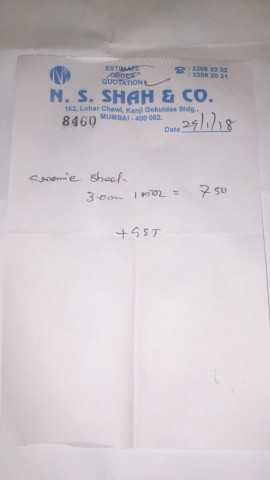 ESTIMATE
ORDER
QUOTATION
☎ : 2208 23 32
: 2208 20 21
N. S. SHAH & CO.
162, Lohar Chawl, Kanji Gokuldas Bldg.,
MUMBAI - 400 002.
8460
Date 29/1/18
Ceramic Sheet
1 = 750
+ GST